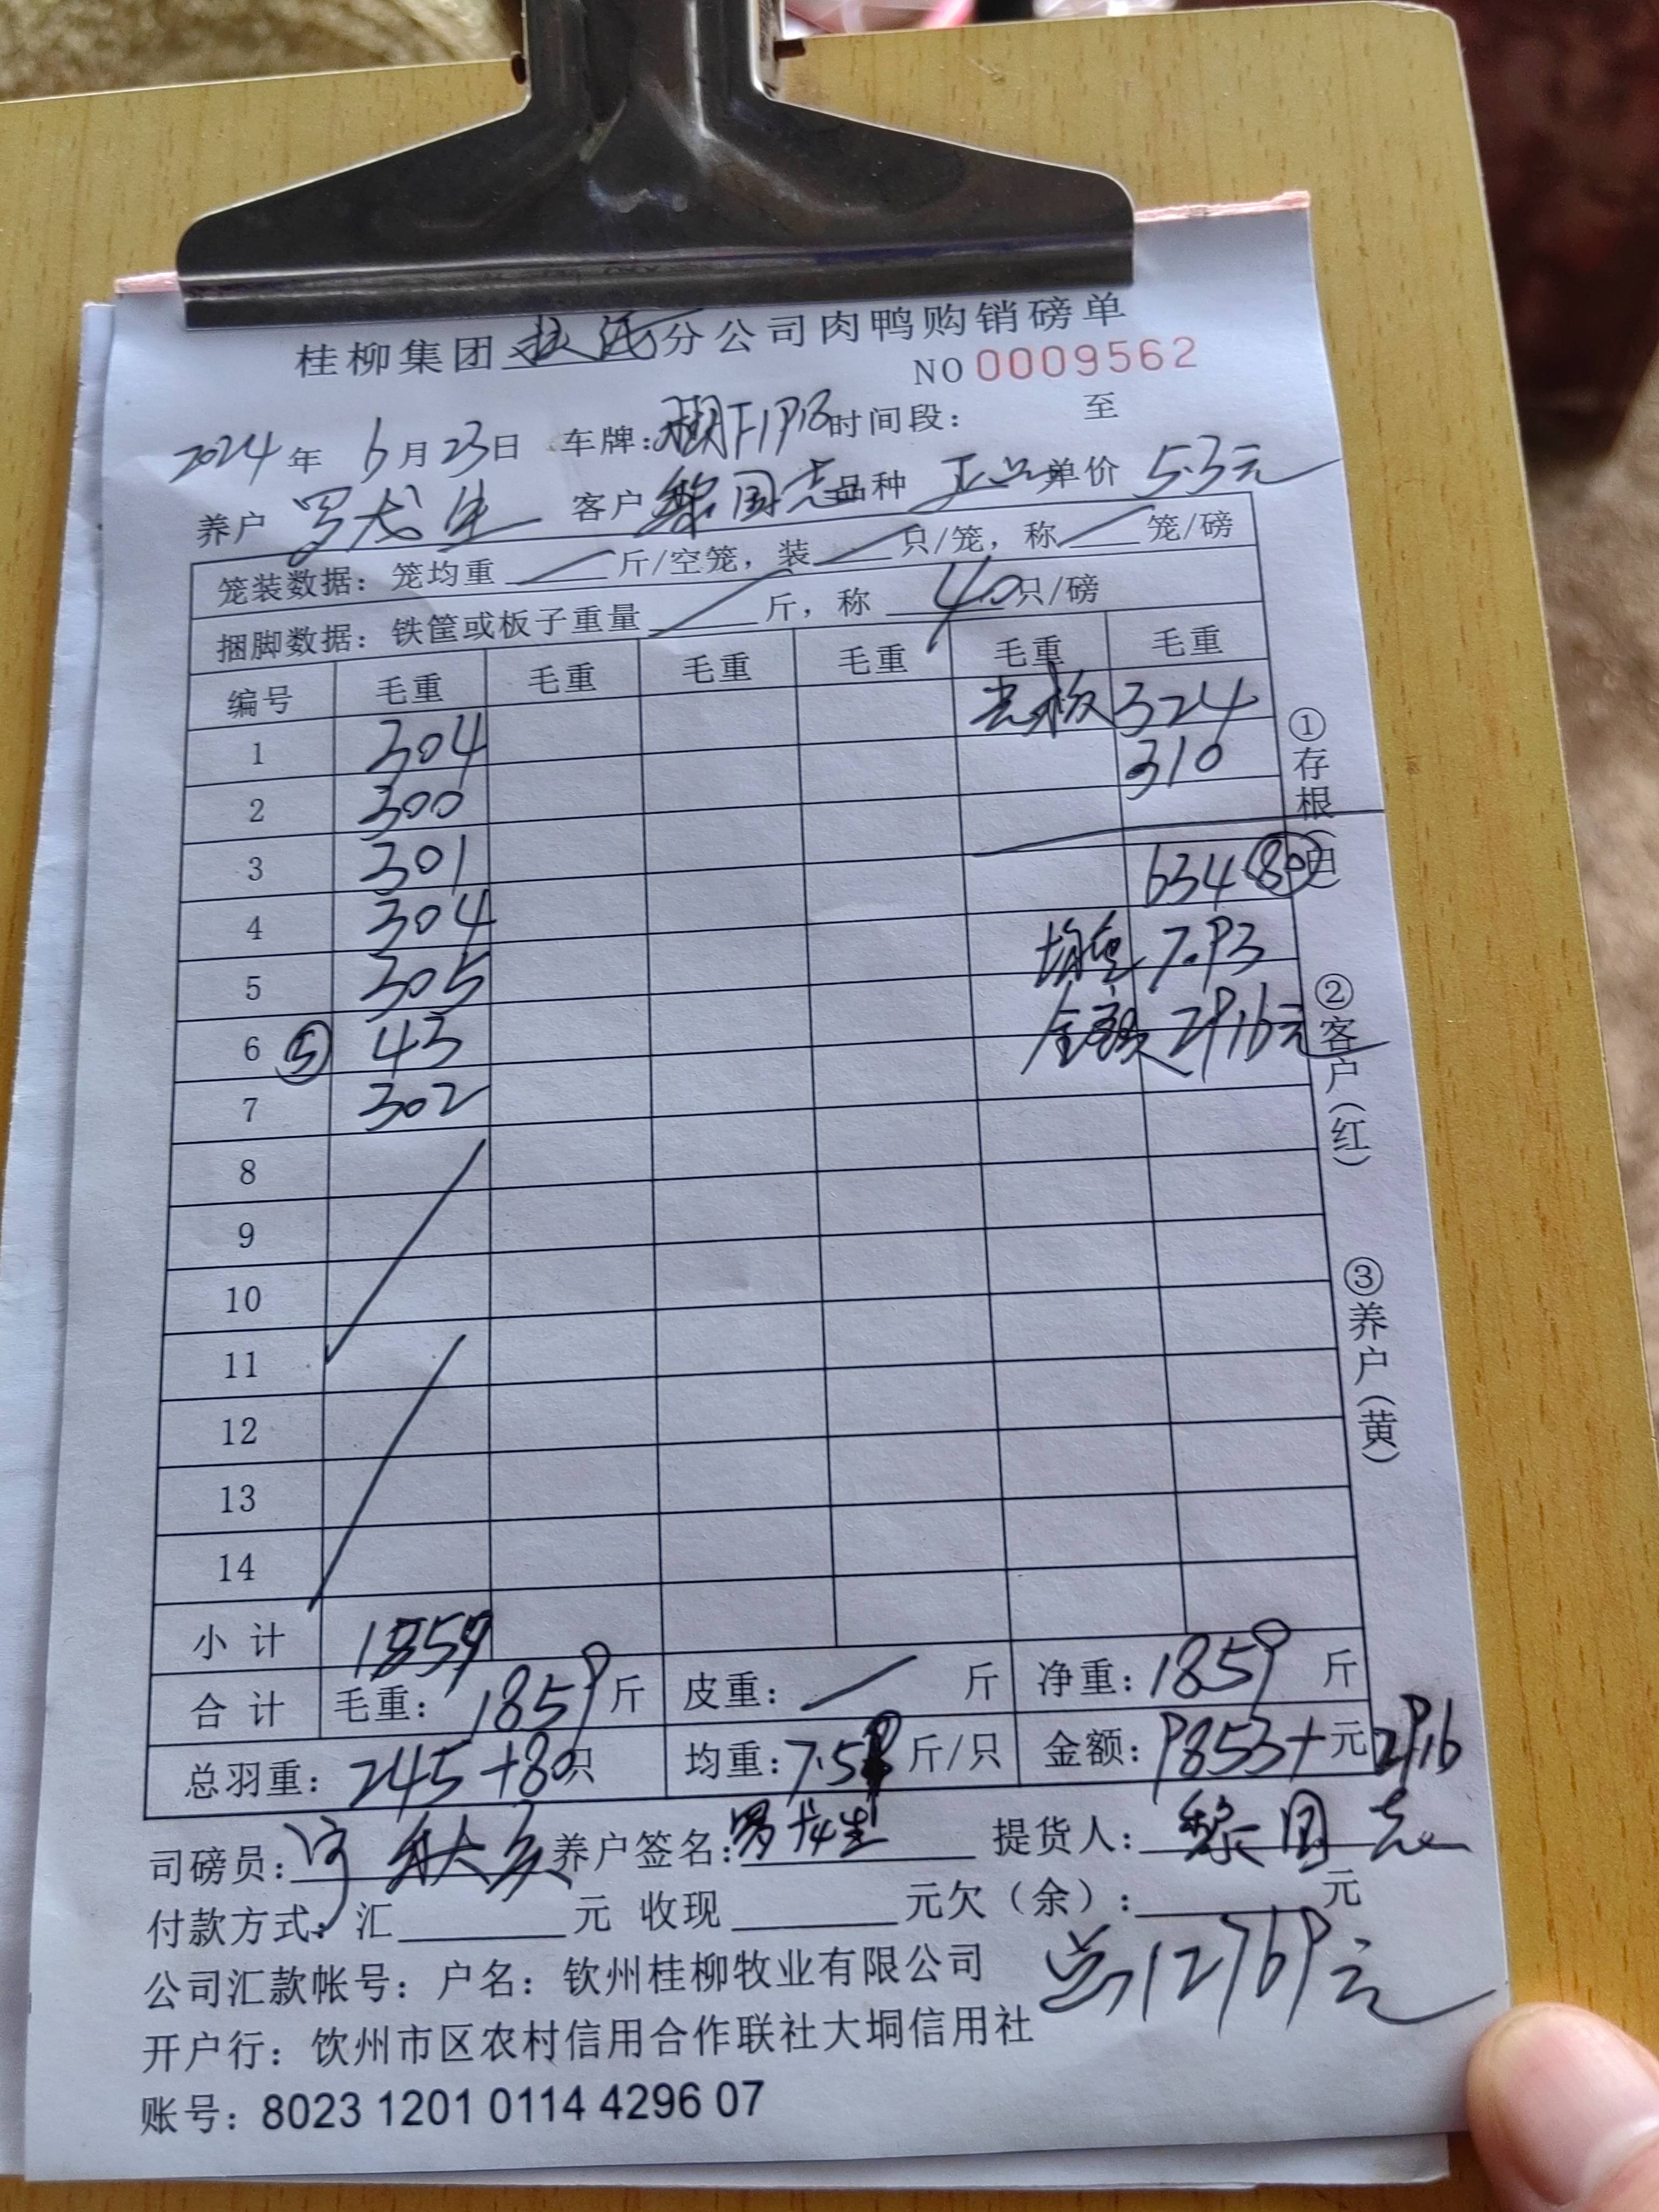 桂柳集团 分公司肉鸭购销磅单
NO 0009562
2024年 6月23日 车牌: 时间段: 至
养户 罗龙生 客户 黎国志 品种 正品 单价 5.3元
笼装数据: 笼均重 斤/空笼, 装 只/笼, 称 笼/磅
捆脚数据: 铁筐或板子重量 斤, 称 40 只/磅
编号 毛重 毛重 毛重 毛重 毛重 毛重
1 304 324
2 300 310
3 301
4 304 634 80
5 305 均重 7.93
6 ⑤ 43 金额 2916元
7 302
8
9
10
11
12
13
14
小计 1859
合计 毛重: 1859 斤 皮重: 斤 净重: 1859 斤
总羽重: 245+80只 均重: 7.5 斤/只 金额: 9853+元2916
司磅员: 养户签名: 罗龙生 提货人: 黎国志
付款方式: 汇 元 收现 元欠(余): 元
公司汇款帐号: 户名: 钦州桂柳牧业有限公司 总12769元
开户行: 钦州市区农村信用合作联社大垌信用社
账号: 8023 1201 0114 4296 07
①存根(白) ②客户(红) ③养户(黄)